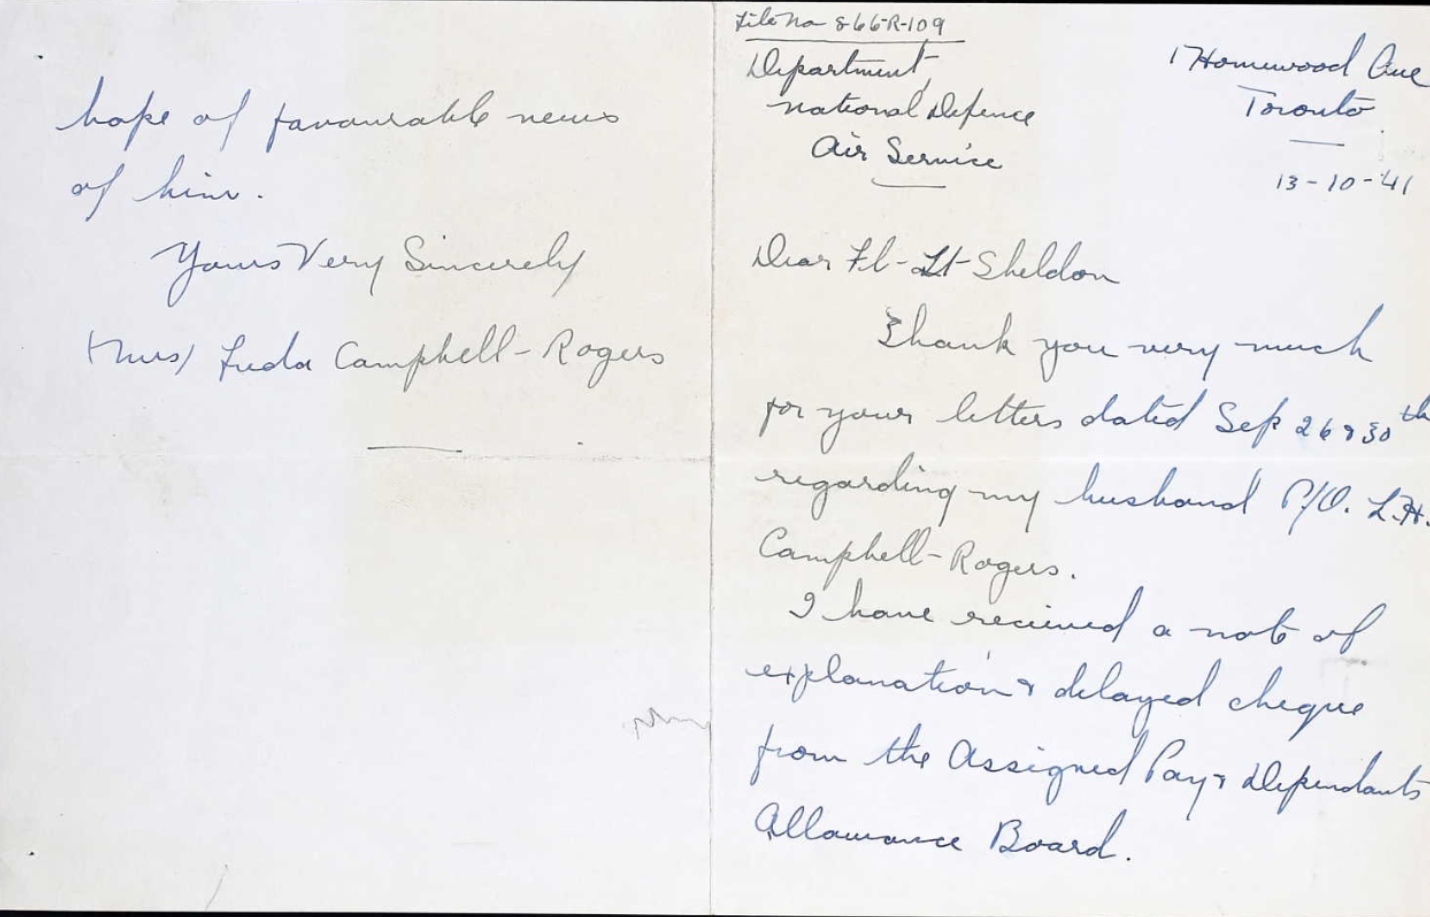 File No 866-R-109
Department
National Defence
Air Service
1 Homewood Ave
Toronto
13-10-'41
Dear Fl-Lt Sheldon
Thank you very much
for your letters dated Sep 26 & 30th
regarding my husband P/O. L.H.
Campbell-Rogers.
I have received a note of
explanation & delayed cheque
from the Assigned Pay & Dependants
Allowance Board.
hope of favourable news
of him.
Yours Very Sincerely
(Mrs) Campbell-Rogers